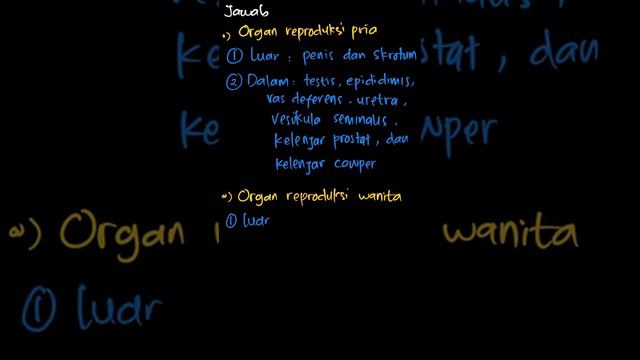 Jawab
•) Organ reproduksi pria
① Luar : penis dan skrotum
② Dalam : testis, epididimis,
vas deferens, uretra,
vesikula seminalis,
kelenjar prostat, dan
kelenjar cowper
•) Organ reproduksi wanita
① luar